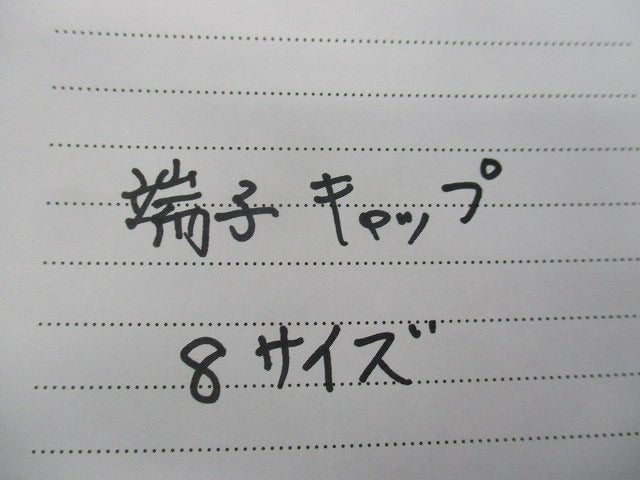 端子キャップ
8サイズ